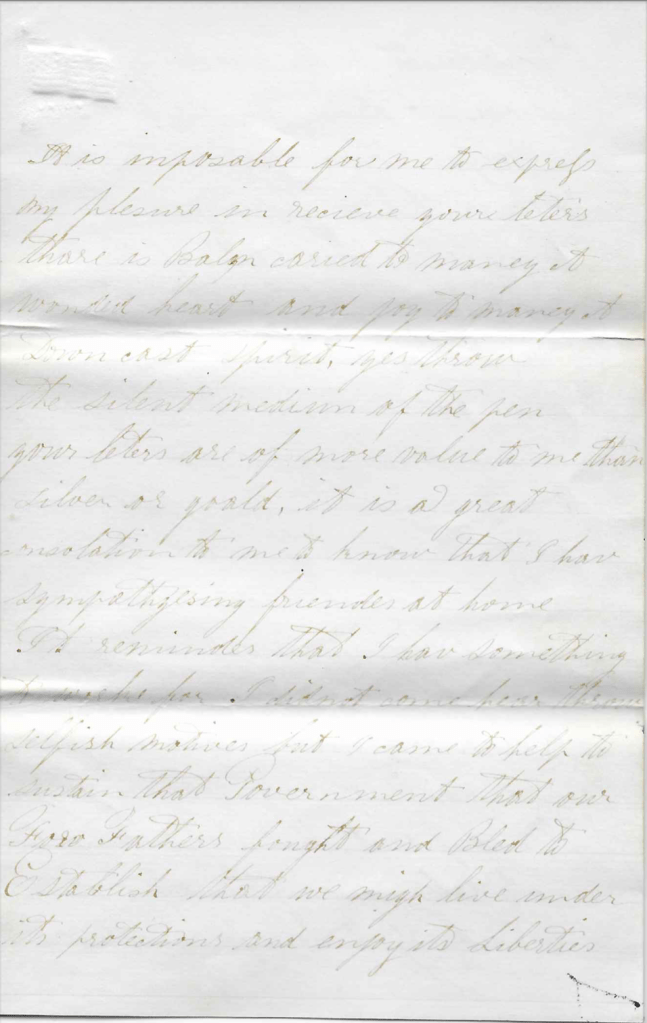 It is imposable for me to express
my plesure in recieve youre leters
thare is Balm caried to maney A
wonded heart and joy to maney A
Down cast spirit, yes throw
the silent medium of the pen
your leters are of more value to me than
silver or goald, it is a great
onsolation to me to know that I hav
sympathyesing friends at home
It reminds that I hav something
to for I did not come hear throw
selfish motives but I came to help to
sustain that Government that our
Fore Fathers fought and Bled to
Establish that we migh live under
its protections and enjoy its Liberties